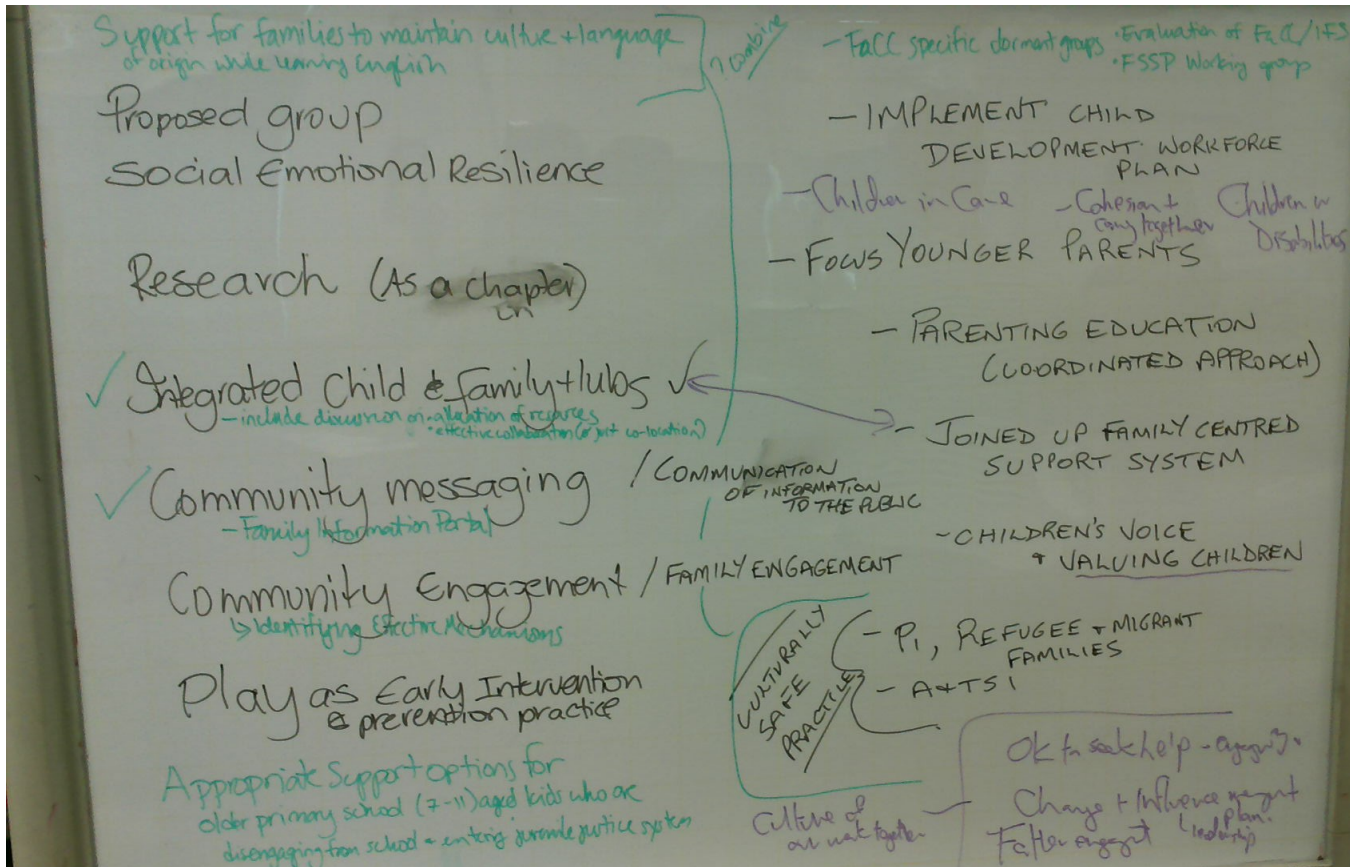 Support for families to maintain culture + language
of origin while learning English
? combine
Proposed group
Social Emotional Resilience
Research (As a chapter)
in
✓ Integrated Child & family Hubs ✓
- include discussion on • allocation of resources
• effective collaboration (or just co-location)
✓ Community messaging / COMMUNICATION
OF INFORMATION
TO THE PUBLIC
- Family Information Portal
Community Engagement / FAMILY ENGAGEMENT
↳ Identifying Effective Mechanisms
Play as Early Intervention
& prevention practice
Appropriate Support options for
older primary school (7-11) aged kids who are
disengaging from school + entering juvenile justice system
- FaCC specific dormant groups • Evaluation of FaCC/IFS
• FSSP Working group
- IMPLEMENT CHILD
DEVELOPMENT WORKFORCE
PLAN
- Children in Care
- Cohesion +
coming together
Children w
Disabilities
- FOCUS YOUNGER PARENTS
- PARENTING EDUCATION
(COORDINATED APPROACH)
- JOINED UP FAMILY CENTRED
SUPPORT SYSTEM
- CHILDREN'S VOICE
+ VALUING CHILDREN
CULTURALLY
SAFE
PRACTICE
- PI, REFUGEE + MIGRANT
FAMILIES
- A+TSI
Culture of
our work together
Ok to seek help -
Change + Influence
plan
leadership
Father